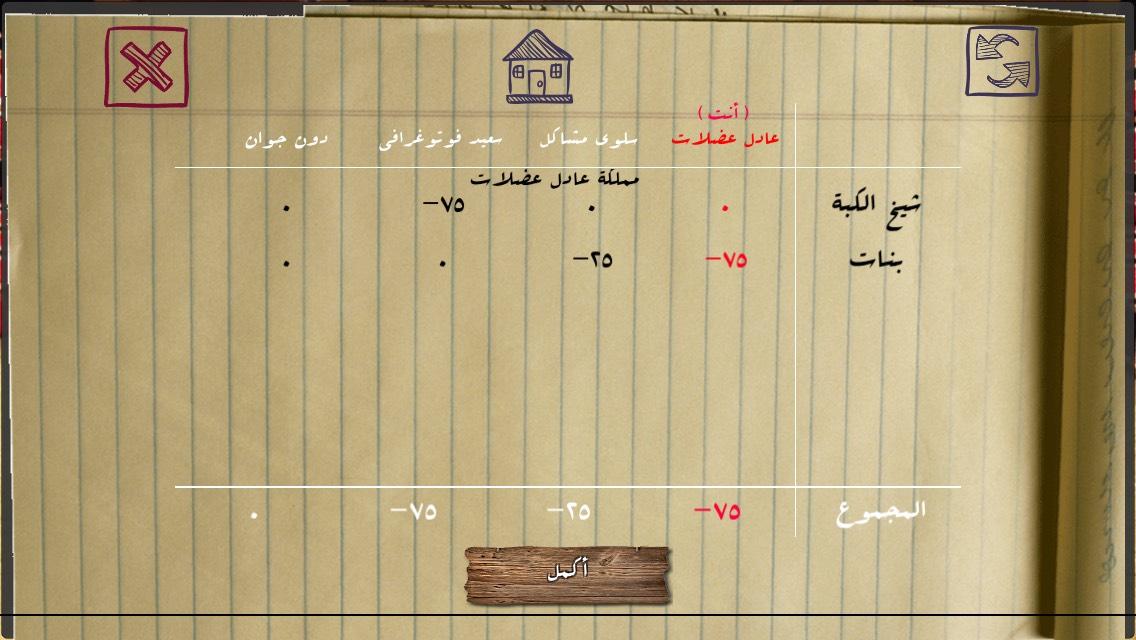 (أنت)
عادل عضلات سلوى مشاكل سعيد فوتوغرافى دون جوان
مملكة عادل عضلات
شيخ الكبة ٠ ٠ -٧٥ ٠
بنات -٧٥ -٢٥ ٠ ٠
المجموع -٧٥ -٢٥ -٧٥ ٠
أكمل